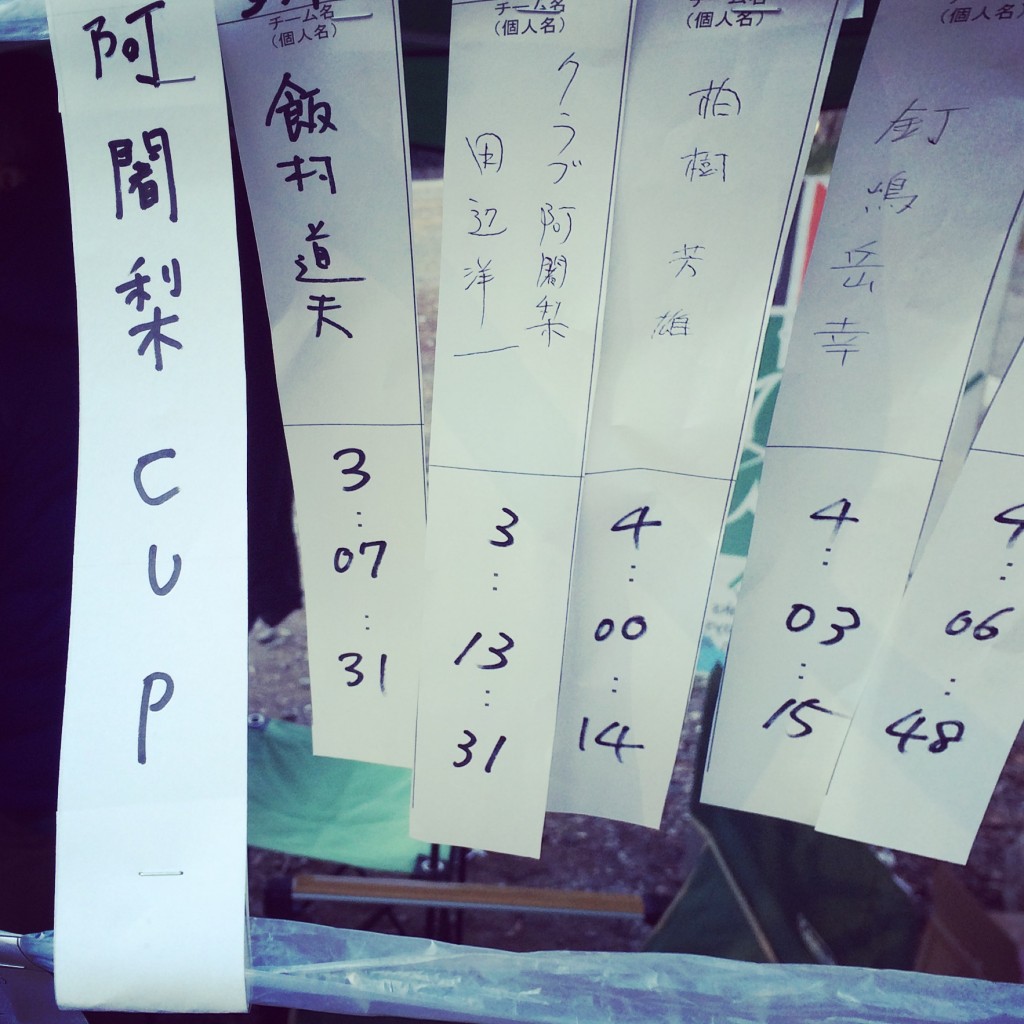 阿闍梨CUP
チーム名
(個人名)
飯村道夫
3:07:31
チーム名
(個人名)
クラブ阿闍梨
田辺洋一
3:13:31
チーム名
(個人名)
柏樹芳雄
4:00:14
(個人名)
釘嶋岳幸
4:03:15
06:48